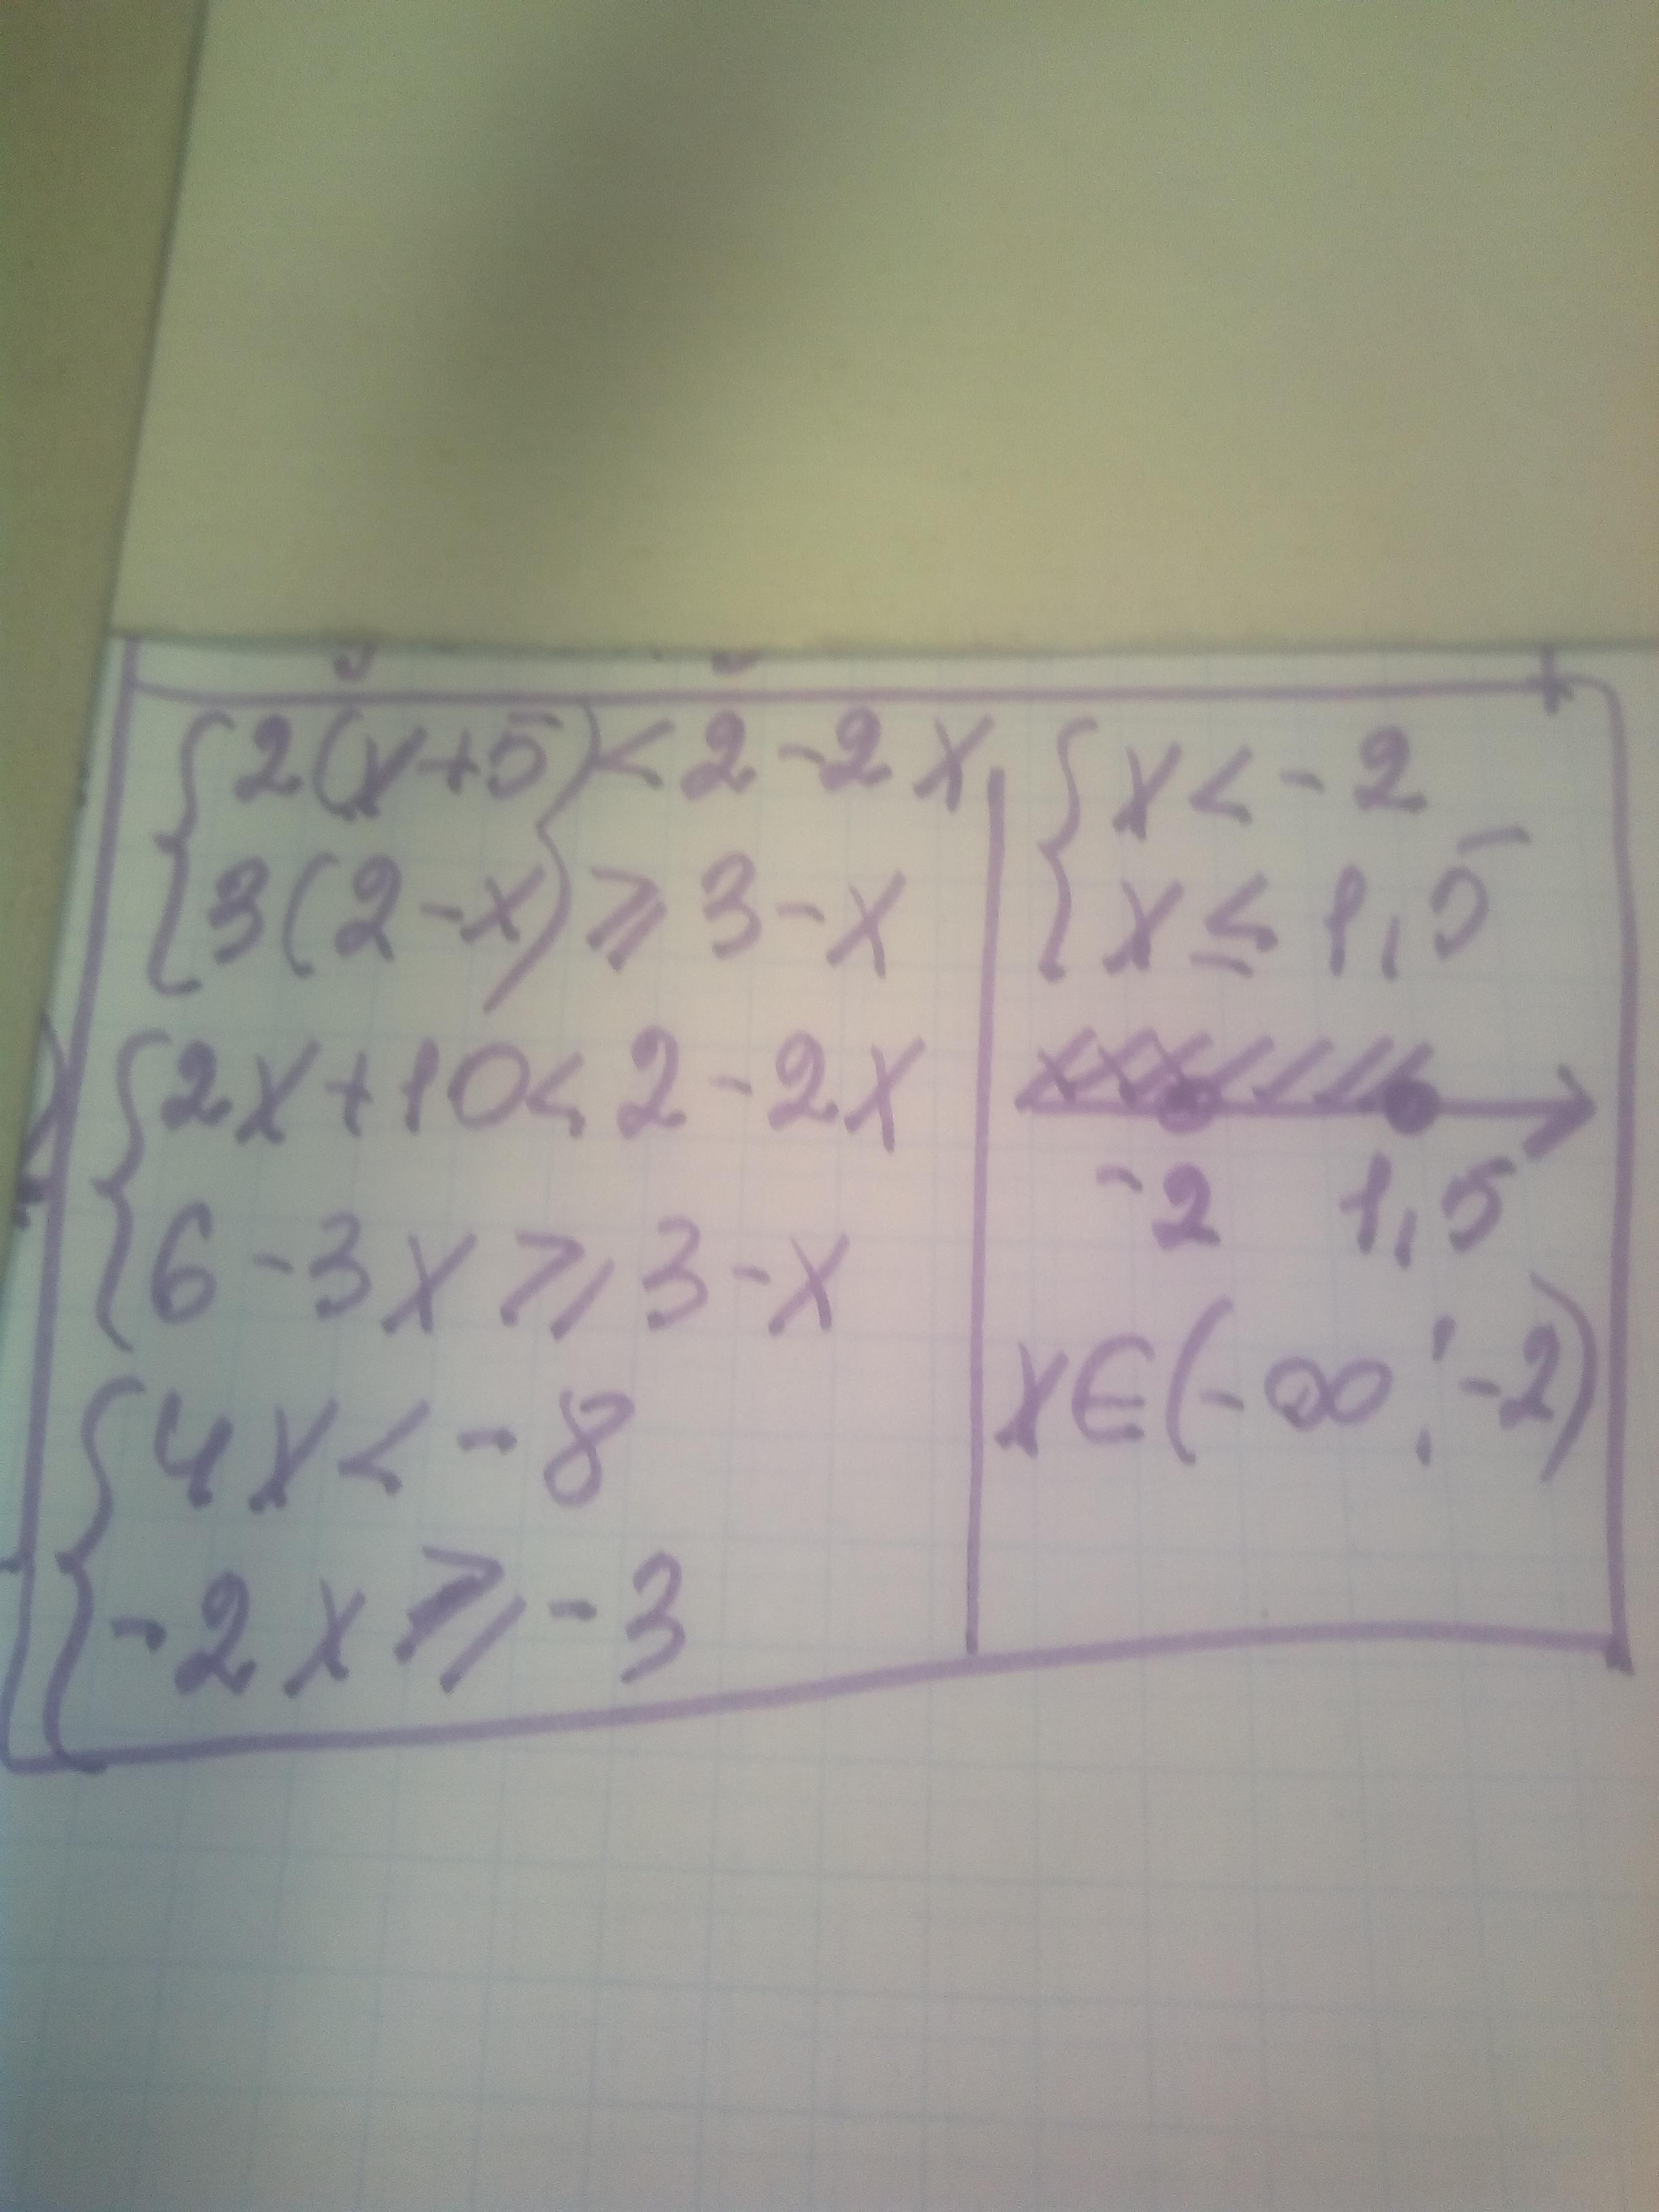 2(x+5)<2-2x
3(2-x)⩾3-x
2x+10<2-2x
6-3x⩾3-x
4x<-8
-2x⩾-3
x<-2
x≤1,5
-2 1,5
x∈(-∞;-2)